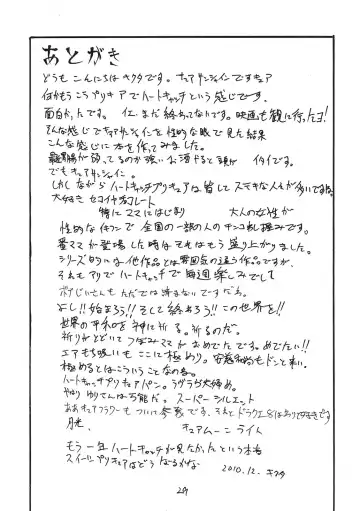 あとがき
どうもこんにちはキクタです。キュアサンシャインですキュア
何かもうこうプリキュアでハートキャッチという感じです。
面白かったです。 仕、まだ終わってないです。映画も観に行ったヨ!
そんな感じでキュアサンシャインを性的な眼で見た結果
こんな感じに本を作ってみました。
が弱ってるのか強いお酒やると頭が イタイです。
でもキュアサンシャイン。
しかしながらハートキャッチプリキュアは皆してステキな人々が多いですね
大好き セコイヤチョコレート
特にママにはじまり 大人の女性が
性的な体つきで 全国の一部の人の
ママが登場した時はそれはもう盛り上がりました。
シリーズ的には他作品とは雰囲気の違う作品ですが、
それもアリでハートキャッチで毎週楽しみでして
ポプじいさんもただでは済まないですだね。
よし!!始まろう!!そして終わろう!!この世界を!!
世界の平和を神に祈る。祈るのだ。
祈りがとどいてつぼみママがおめでたです。めでたい!!
エアもち吸いもここに極めり。安もドンと来い。
極めるとはこういうことなのね。
ハートキャッチプリキュアバン。うがうが大締め。
やはりゆりさんは万能だ。スーパーシルエット
ああキュアフラワーもついに参戦です。それとドラクエ8はおり好きです
月光 キュアムーンライト
もう一年ハートキャッチが見たかったという本音
スイートプリキュアはどうなるかな 2010.12. キクタ
29